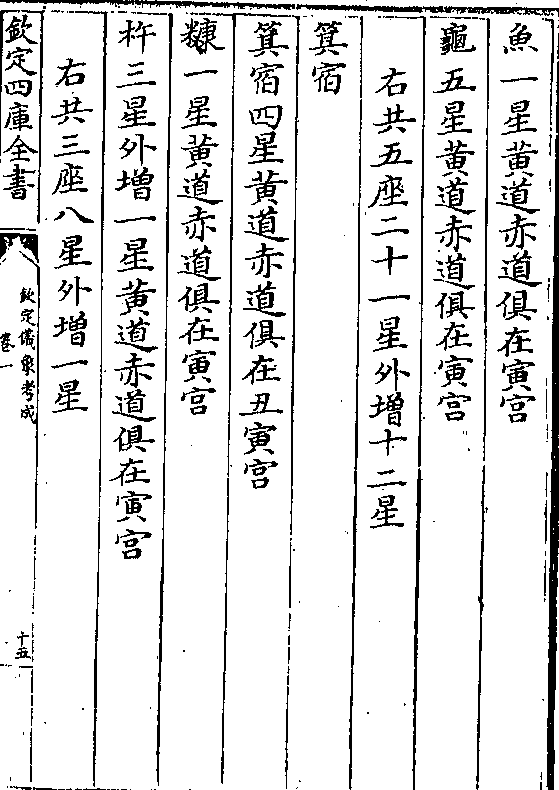 魚一星黄道赤道俱在寅宮
龜五星黄道赤道俱在寅宮
右共五座二十一星外增十二星
箕宿
箕宿四星黄道赤道俱在丑寅宮
糠一星黄道赤道俱在寅宮
杵三星外增一星黄道赤道俱在寅宮
右共三座八星外增一星
欽定四庫全書
欽定儀象考成
卷一
十五